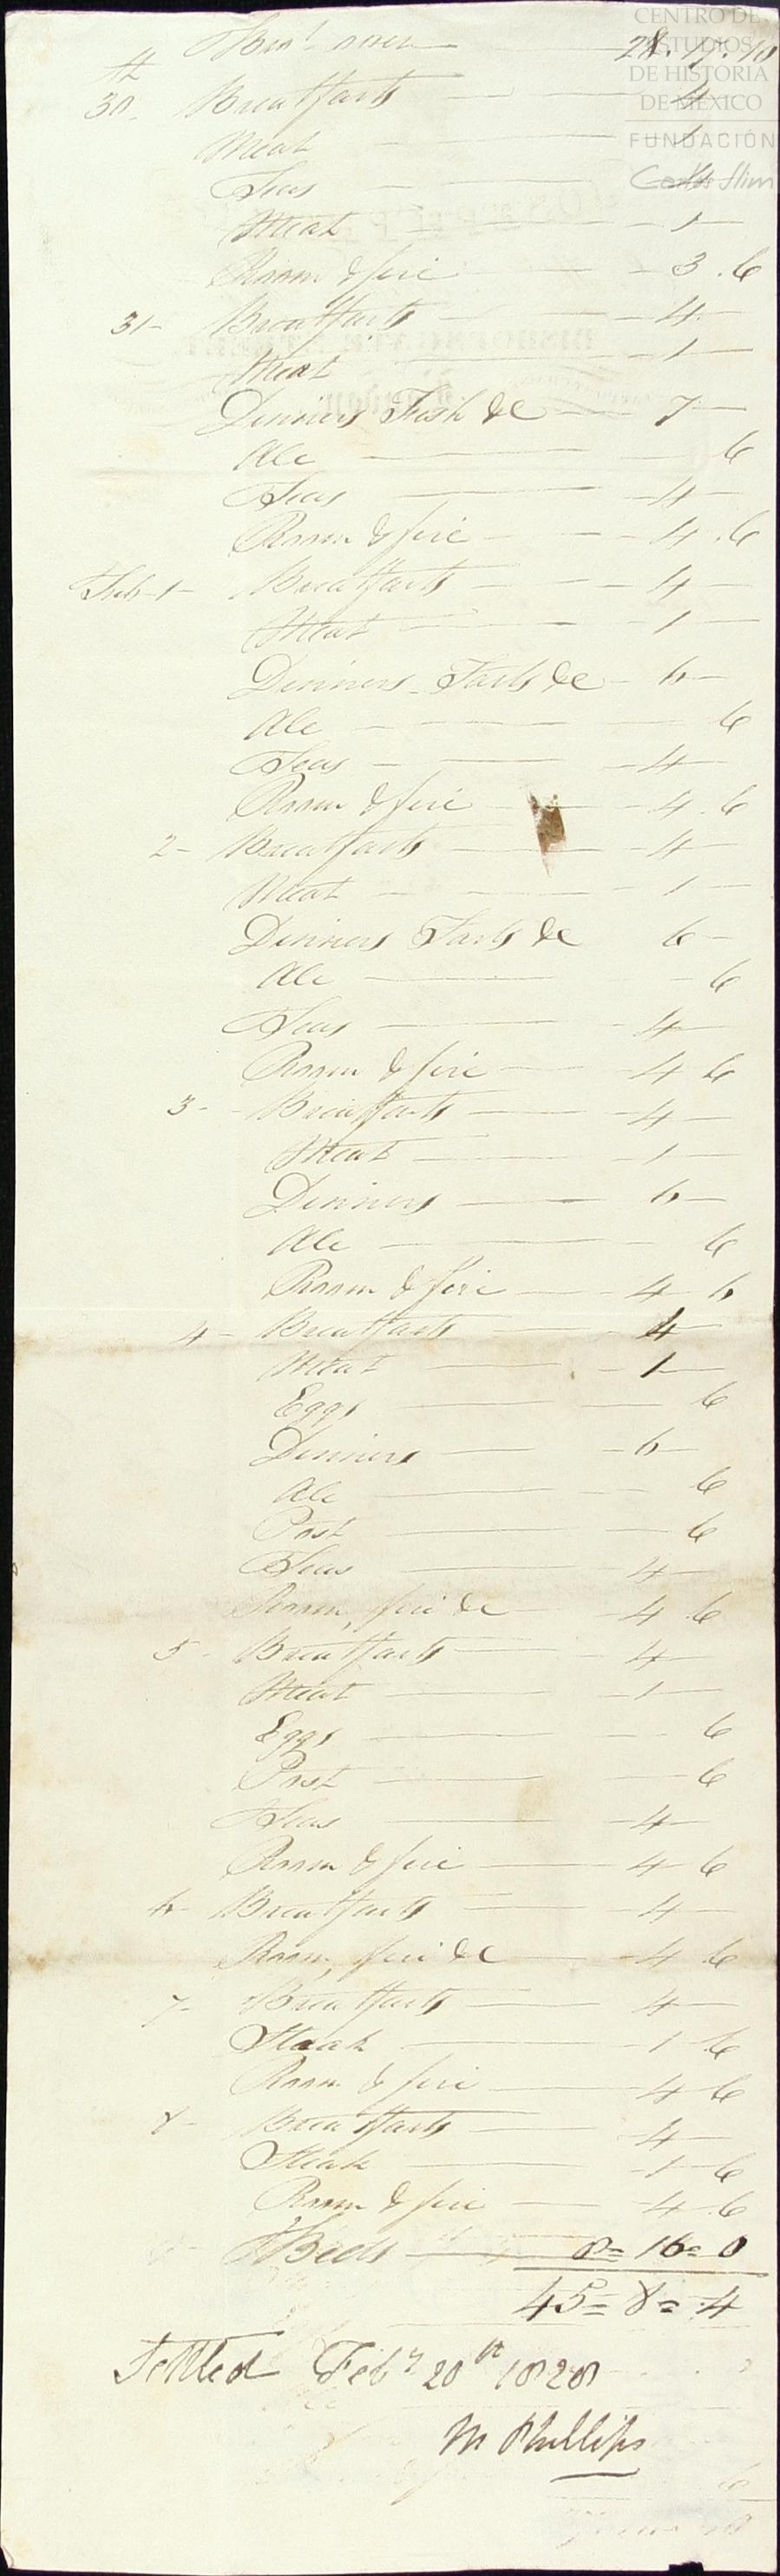 CENTRO DE
ESTUDIOS
DE HISTORIA
DE MÉXICO
FUNDACIÓN
Carlos Slim
Brot over 28.17.10
30 Breakfasts 4
Meat 1
Teas 4
Meat 1
Room & fire 3.6
31 Breakfasts 4
Meat 1
Dinners Fish &c 7
Ale 6
Teas 4
Room & fire 4.6
Feb 1 Breakfasts 4
Meat 1
Dinners Tarts &c 6
Ale 6
Teas 4
Room & fire 4.6
2 Breakfasts 4
Meat 1
Dinners Tarts &c 6
Ale 6
Teas 4
Room & fire 4 6
3 Breakfasts 4
Meat 1
Dinners 6
Ale 6
Room & fire 4 6
4 Breakfasts 4
Meat 1
Eggs 6
Dinners 6
Ale 6
Post 6
Teas 4
Room, fire &c 4 6
5 Breakfasts 4
Meat 1
Eggs 6
Post 6
Teas 4
Room & fire 4 6
6 Breakfasts 4
Room, fire &c 4 6
7 Breakfasts 4
Steak 1 6
Room & fire 4 6
8 Breakfasts 4
Steak 1 6
Room & fire 4 6
Beds 8=16=0
45=8=4
Settled Feby 20th 1828
M Phillips